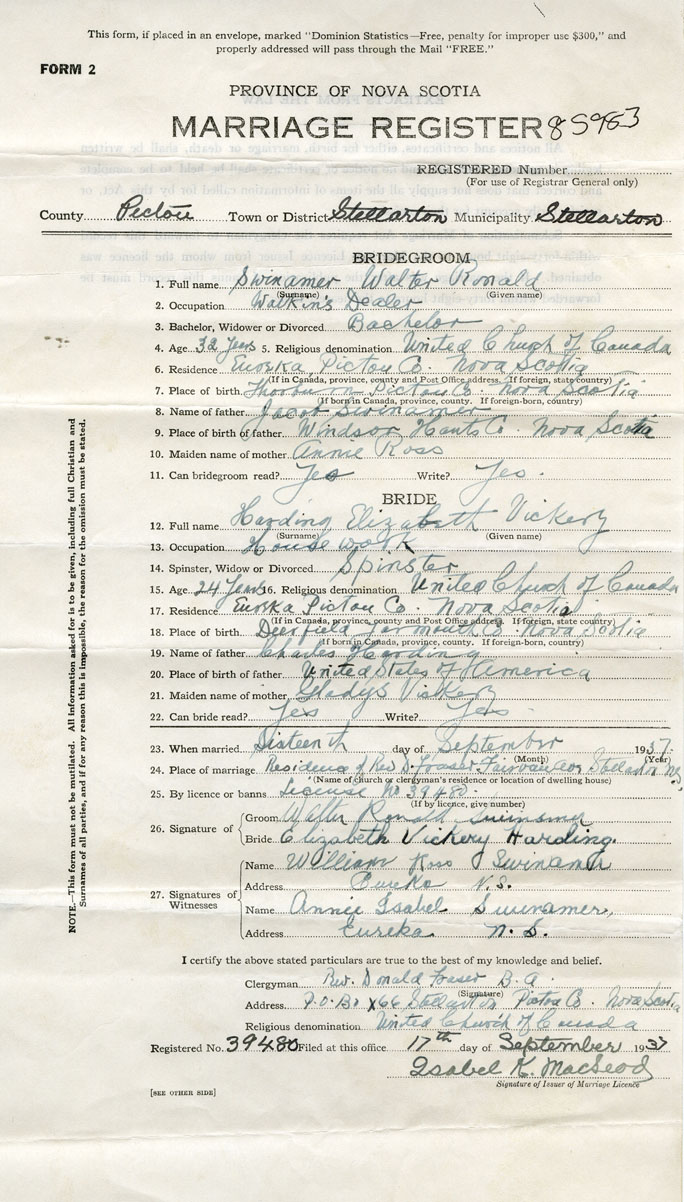 This form, if placed in an envelope, marked "Dominion Statistics—Free, penalty for improper use $300," and
properly addressed will pass through the Mail "FREE."
FORM 2
PROVINCE OF NOVA SCOTIA
MARRIAGE REGISTER 85983
REGISTERED Number
(For use of Registrar General only)
County Pictou Town or District Stellarton Municipality Stellarton
BRIDEGROOM
1. Full name Swinamer Walter Ronald
(Surname) (Given name)
2. Occupation Watkin's Dealer
3. Bachelor, Widower or Divorced Bachelor
4. Age 32 Years 5. Religious denomination United Church of Canada
6. Residence Eureka, Pictou Co. Nova Scotia
(If in Canada, province, county and Post Office address. If foreign, state country)
7. Place of birth Thorburn Pictou Co. Nova Scotia
(If born in Canada, province, county. If foreign-born, country)
8. Name of father Jacob Swinamer
9. Place of birth of father Windsor Hants Co. Nova Scotia
10. Maiden name of mother Annie Ross
11. Can bridegroom read? Yes Write? Yes.
BRIDE
12. Full name Harding Elizabeth Vickery
(Surname) (Given name)
13. Occupation House work
14. Spinster, Widow or Divorced Spinster
15. Age 24 Years 16. Religious denomination United Church of Canada
17. Residence Eureka Pictou Co. Nova Scotia
(If in Canada, province, county and Post Office address. If foreign, state country)
18. Place of birth Deerfield Yarmouth Co Nova Scotia
(If born in Canada, province, county. If foreign-born, country)
19. Name of father Charles Harding
20. Place of birth of father United States of America
21. Maiden name of mother Gladys Vickery
22. Can bride read? Yes Write? Yes
23. When married Sixteenth day of September 1937.
(Month) (Year)
24. Place of marriage Residence of Rev D. Fraser Stellarton N.S.
(Name of church or clergyman's residence or location of dwelling house)
25. By licence or banns License No 39480.
(If by licence, give number)
26. Signature of
Groom Walter Ronald Swinamer
Bride Elizabeth Vickery Harding.
27. Signatures of Witnesses
Name William Ross Swinamer
Address Eureka N.S.
Name Annie Isabel Swinamer,
Address Eureka N.S.
I certify the above stated particulars are true to the best of my knowledge and belief.
Clergyman Rev. Donald Fraser B.A.
(Signature)
Address P.O. Box 66 Stellarton Pictou Co. Nova Scotia
Religious denomination United Church of Canada
Registered No. 39480 Filed at this office 17th day of September 1937
Isabel K. MacLeod
Signature of Issuer of Marriage Licence
[SEE OTHER SIDE]
NOTE.—This form must not be mutilated. All information asked for is to be given, including full Christian and
Surnames of all parties, and if for any reason this is impossible, the reason for the omission must be stated.